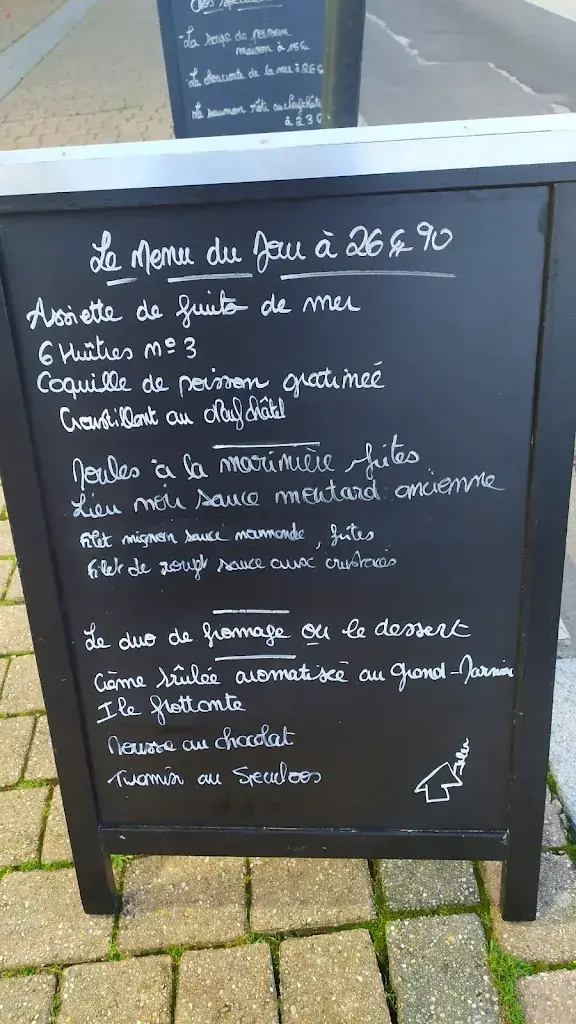 Nos spécialités
- La soupe de poisson
maison à 15€
- La choucroute de la mer à 26€
- Le saumon rôti au
à 23€
Le Menu du Jou à 26€90
Assiette de fruits de mer
6 Huîtres N° 3
Coquille de poisson gratinéé
Croustillant au Neufchâtel
Moules à la marinière, frites
Lieu noir sauce moutard ancienne
Filet mignon sauce normande, frites
Filet de rouget sauce aux crustacés
Le duo de fromage ou le dessert
Crème brûlée aromatisée au Grand-Marnier
Ile flottante
Mousse au chocolat
Tiramisu au Speculoos